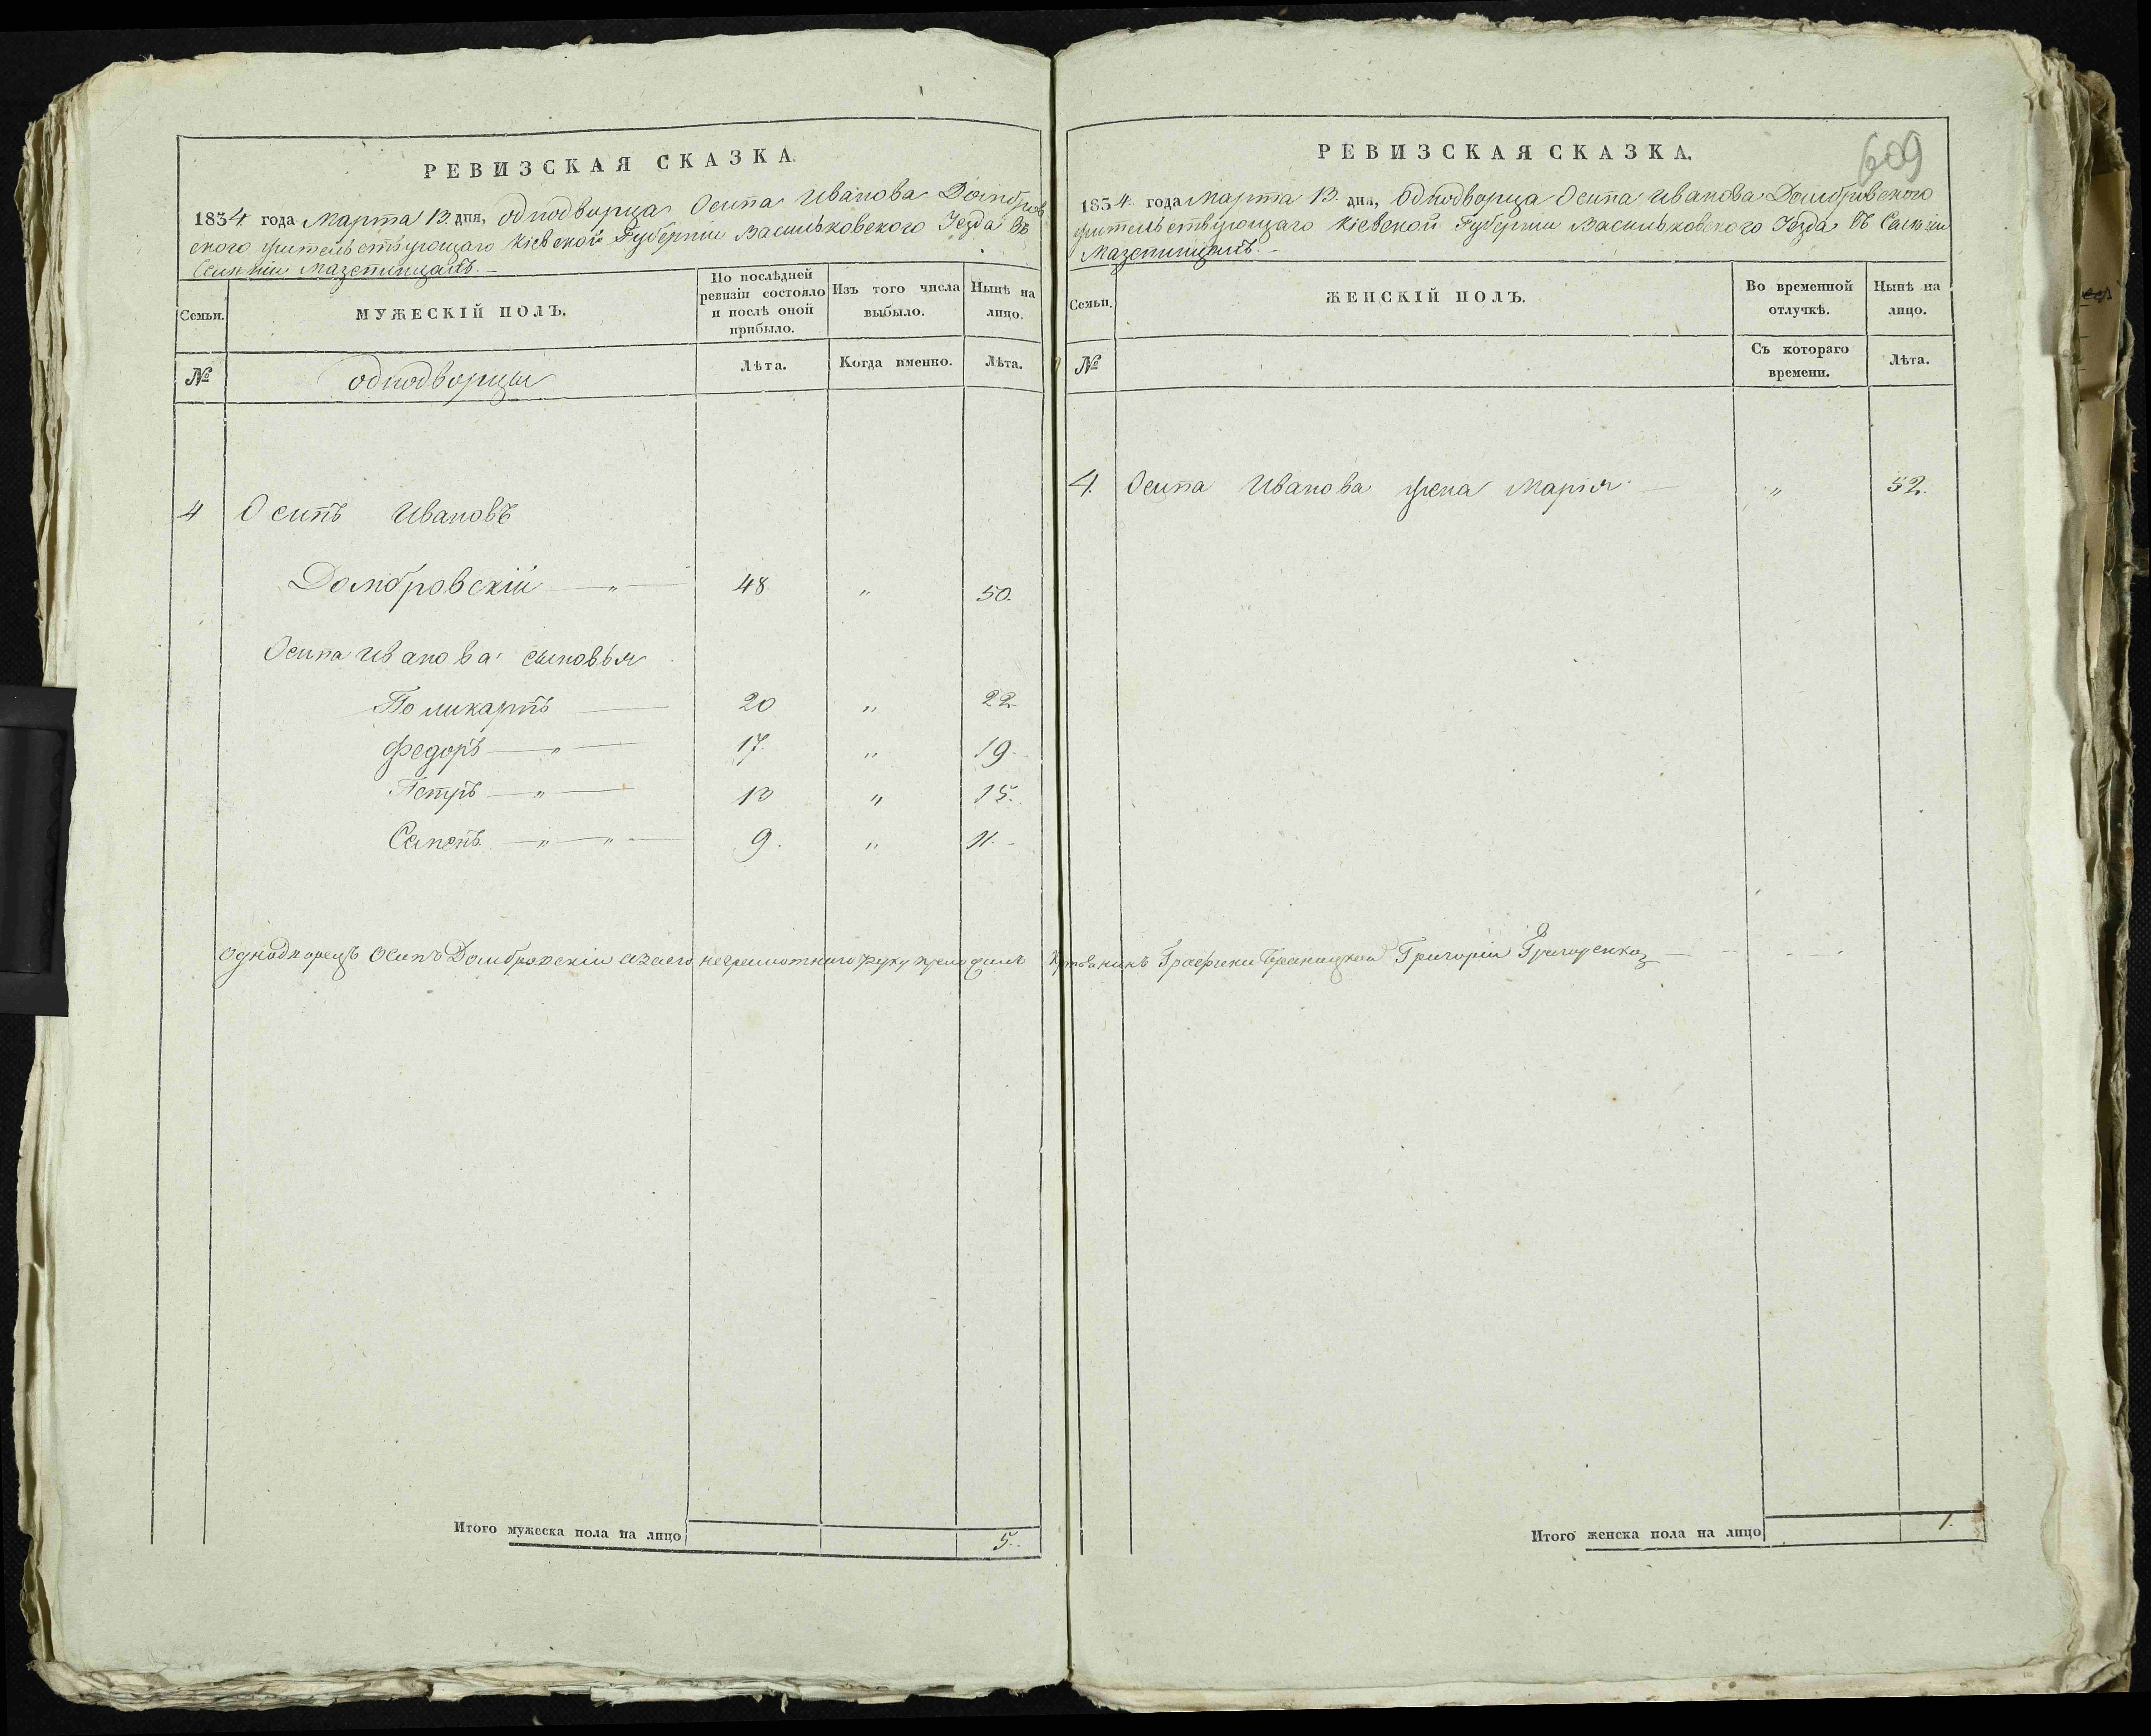 РЕВИЗСКАЯ СКАЗКА.
1834 года Марта 13. дня, однодворца Осипа Иванова Домбров
ского жительствующаго Кіевской Губерніи Васильковского Уезда въ
Селеніи Мазепинцахъ. —
Семьи.
МУЖЕСКІЙ ПОЛЪ.
По послѣдней ревизіи состояло и послѣ оной прибыло.
Изъ того числа выбыло.
Нынѣ на лицо.
№
однодворцы
Лѣта.
Когда именно.
Лѣта.
4 Осипъ Ивановъ
Домбровскій — „ — 48 „ 50.
Осипа Иванова сыновья
Поликарпъ — 20 „ 22
Федоръ — „ — 17. „ 19.
Петръ — „ — 13 „ 15.
Семенъ — „ — „ — 9. „ 11. -
Однодворецъ Осипъ Домбровскій а за его неграмотного руку приложилъ
Итого мужеска пола на лицо 5.
609
РЕВИЗСКАЯ СКАЗКА.
1834. года Марта 13. дня, однодворца Осипа Иванова Домбровского
жительствующаго Кіевской Губерніи Васильковского Уезда въ Селеніи
Мазепинцахъ. —
Семьи.
ЖЕНСКІЙ ПОЛЪ.
Во временной отлучкѣ.
Нынѣ на лицо.
№
Съ котораго времени.
Лѣта.
4. Осипа Иванова жена Марія — „ 52.
Графини Браницкой Григорій
Итого женска пола на лицо 1.